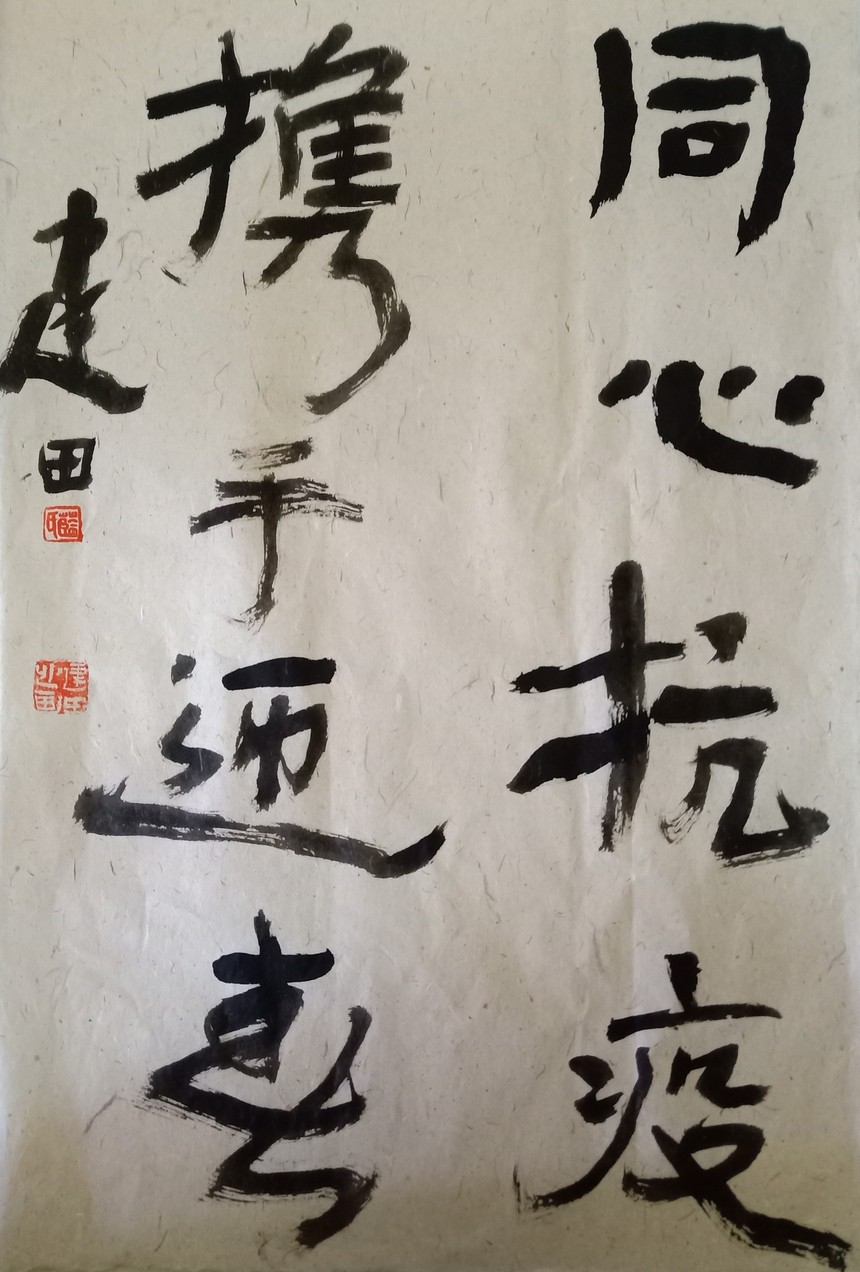 同心抗疫
携手迎春
建田